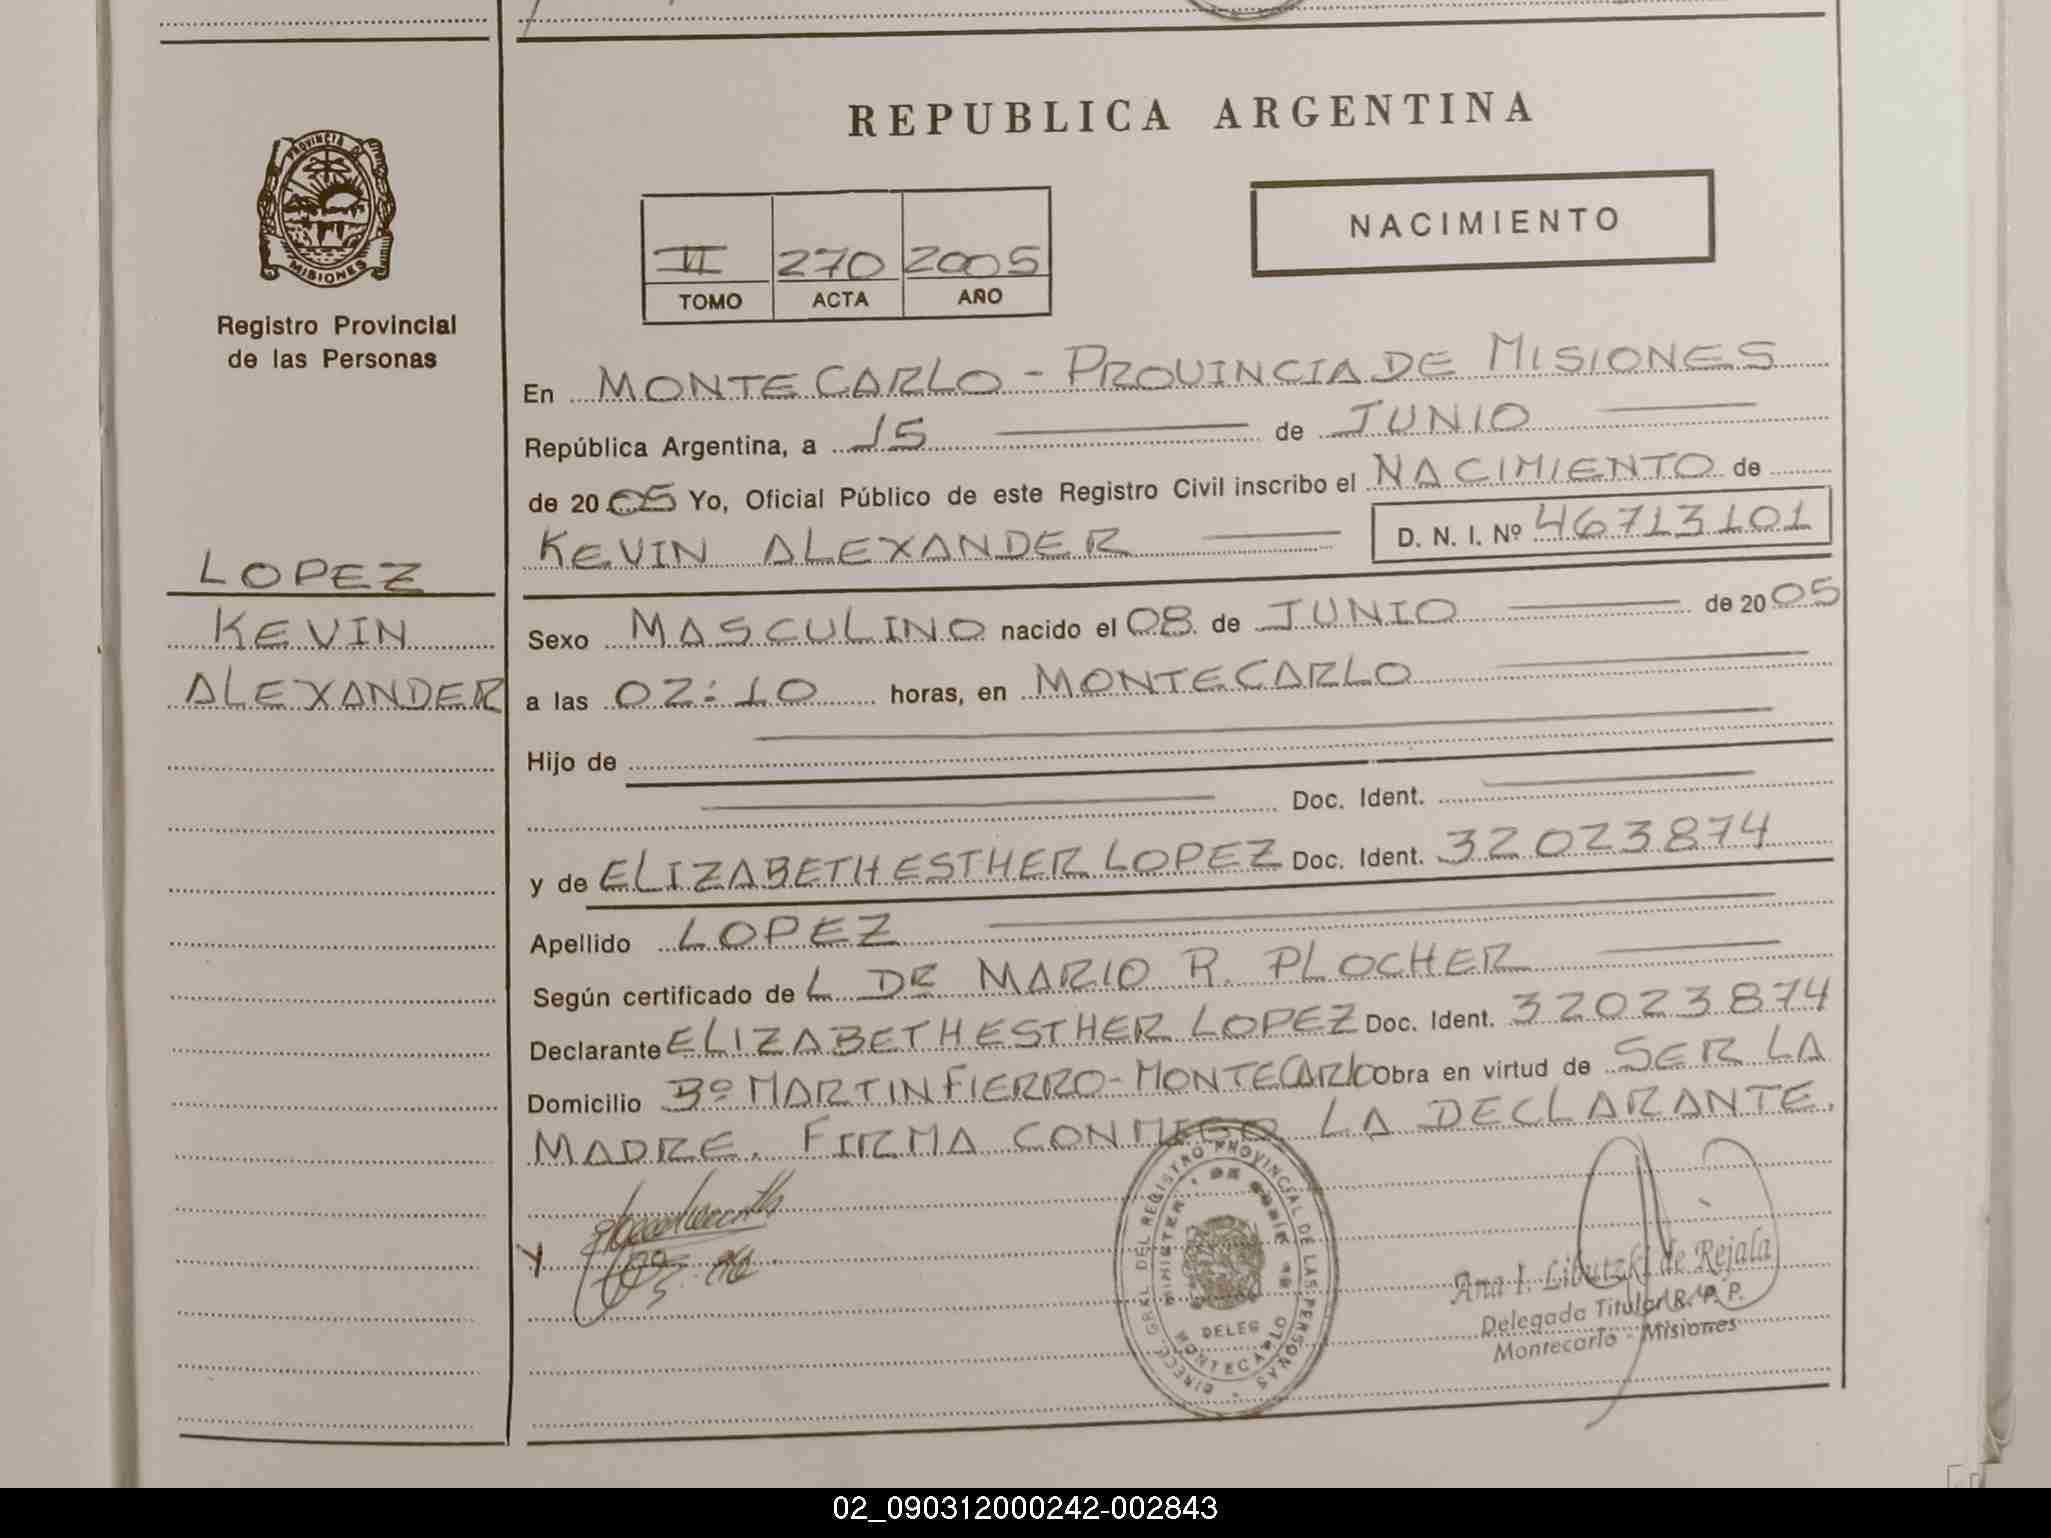 REPUBLICA ARGENTINA
PROVINCIA DE
MISIONES
Registro Provincial
de las Personas
II 270 2005
TOMO ACTA AÑO
NACIMIENTO
En MONTECARLO - PROVINCIA DE MISIONES
República Argentina, a 15 de JUNIO
de 2005 Yo, Oficial Público de este Registro Civil inscribo el NACIMIENTO de
KEVIN ALEXANDER D. N. I. Nº 46713101
LOPEZ
KEVIN
ALEXANDER
Sexo MASCULINO nacido el 08 de JUNIO de 2005
a las 02:10 horas, en MONTECARLO
Hijo de
Doc. Ident.
y de ELIZABETH ESTHER LOPEZ Doc. Ident. 32023874
Apellido LOPEZ
Según certificado de L DE MARIO R. PLOCHER
Declarante ELIZABETH ESTHER LOPEZ Doc. Ident. 32023874
Domicilio Bº MARTIN FIERRO - MONTECARLO Obra en virtud de SER LA
MADRE. FIRMA CONMIGO LA DECLARANTE.
DIRECC. GRAL. DEL REGISTRO PROVINCIAL DE LAS PERSONAS
DELEG
MONTECARLO
Ana I. Libutzki de Rejala
Delegada Titular R. P. P.
Montecarlo - Misiones
02_090312000242-002843